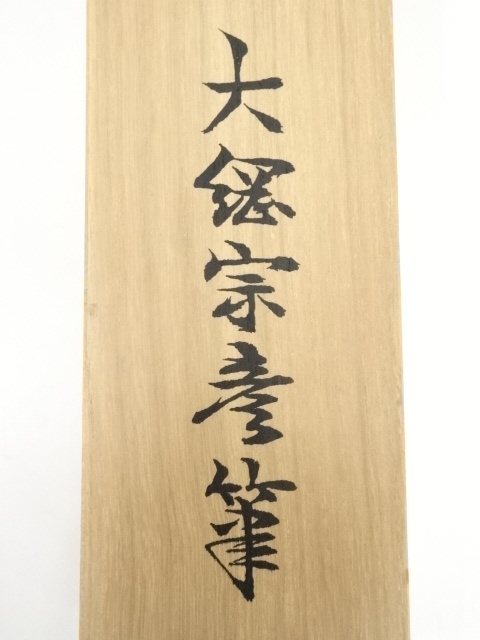 大綱宗彦筆